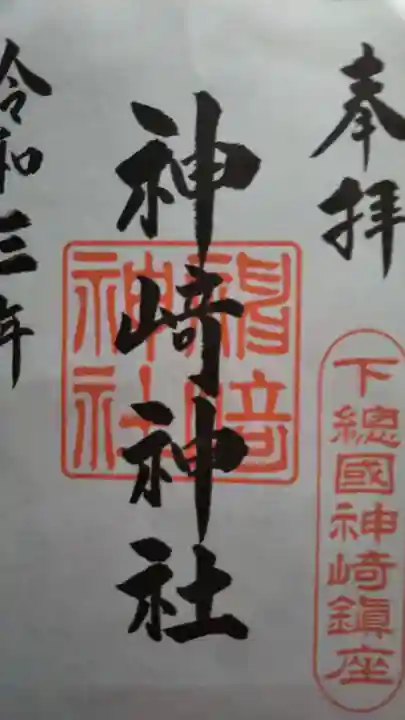 奉拝
下總國神崎鎮座
神崎神社
神崎神社
令和三年